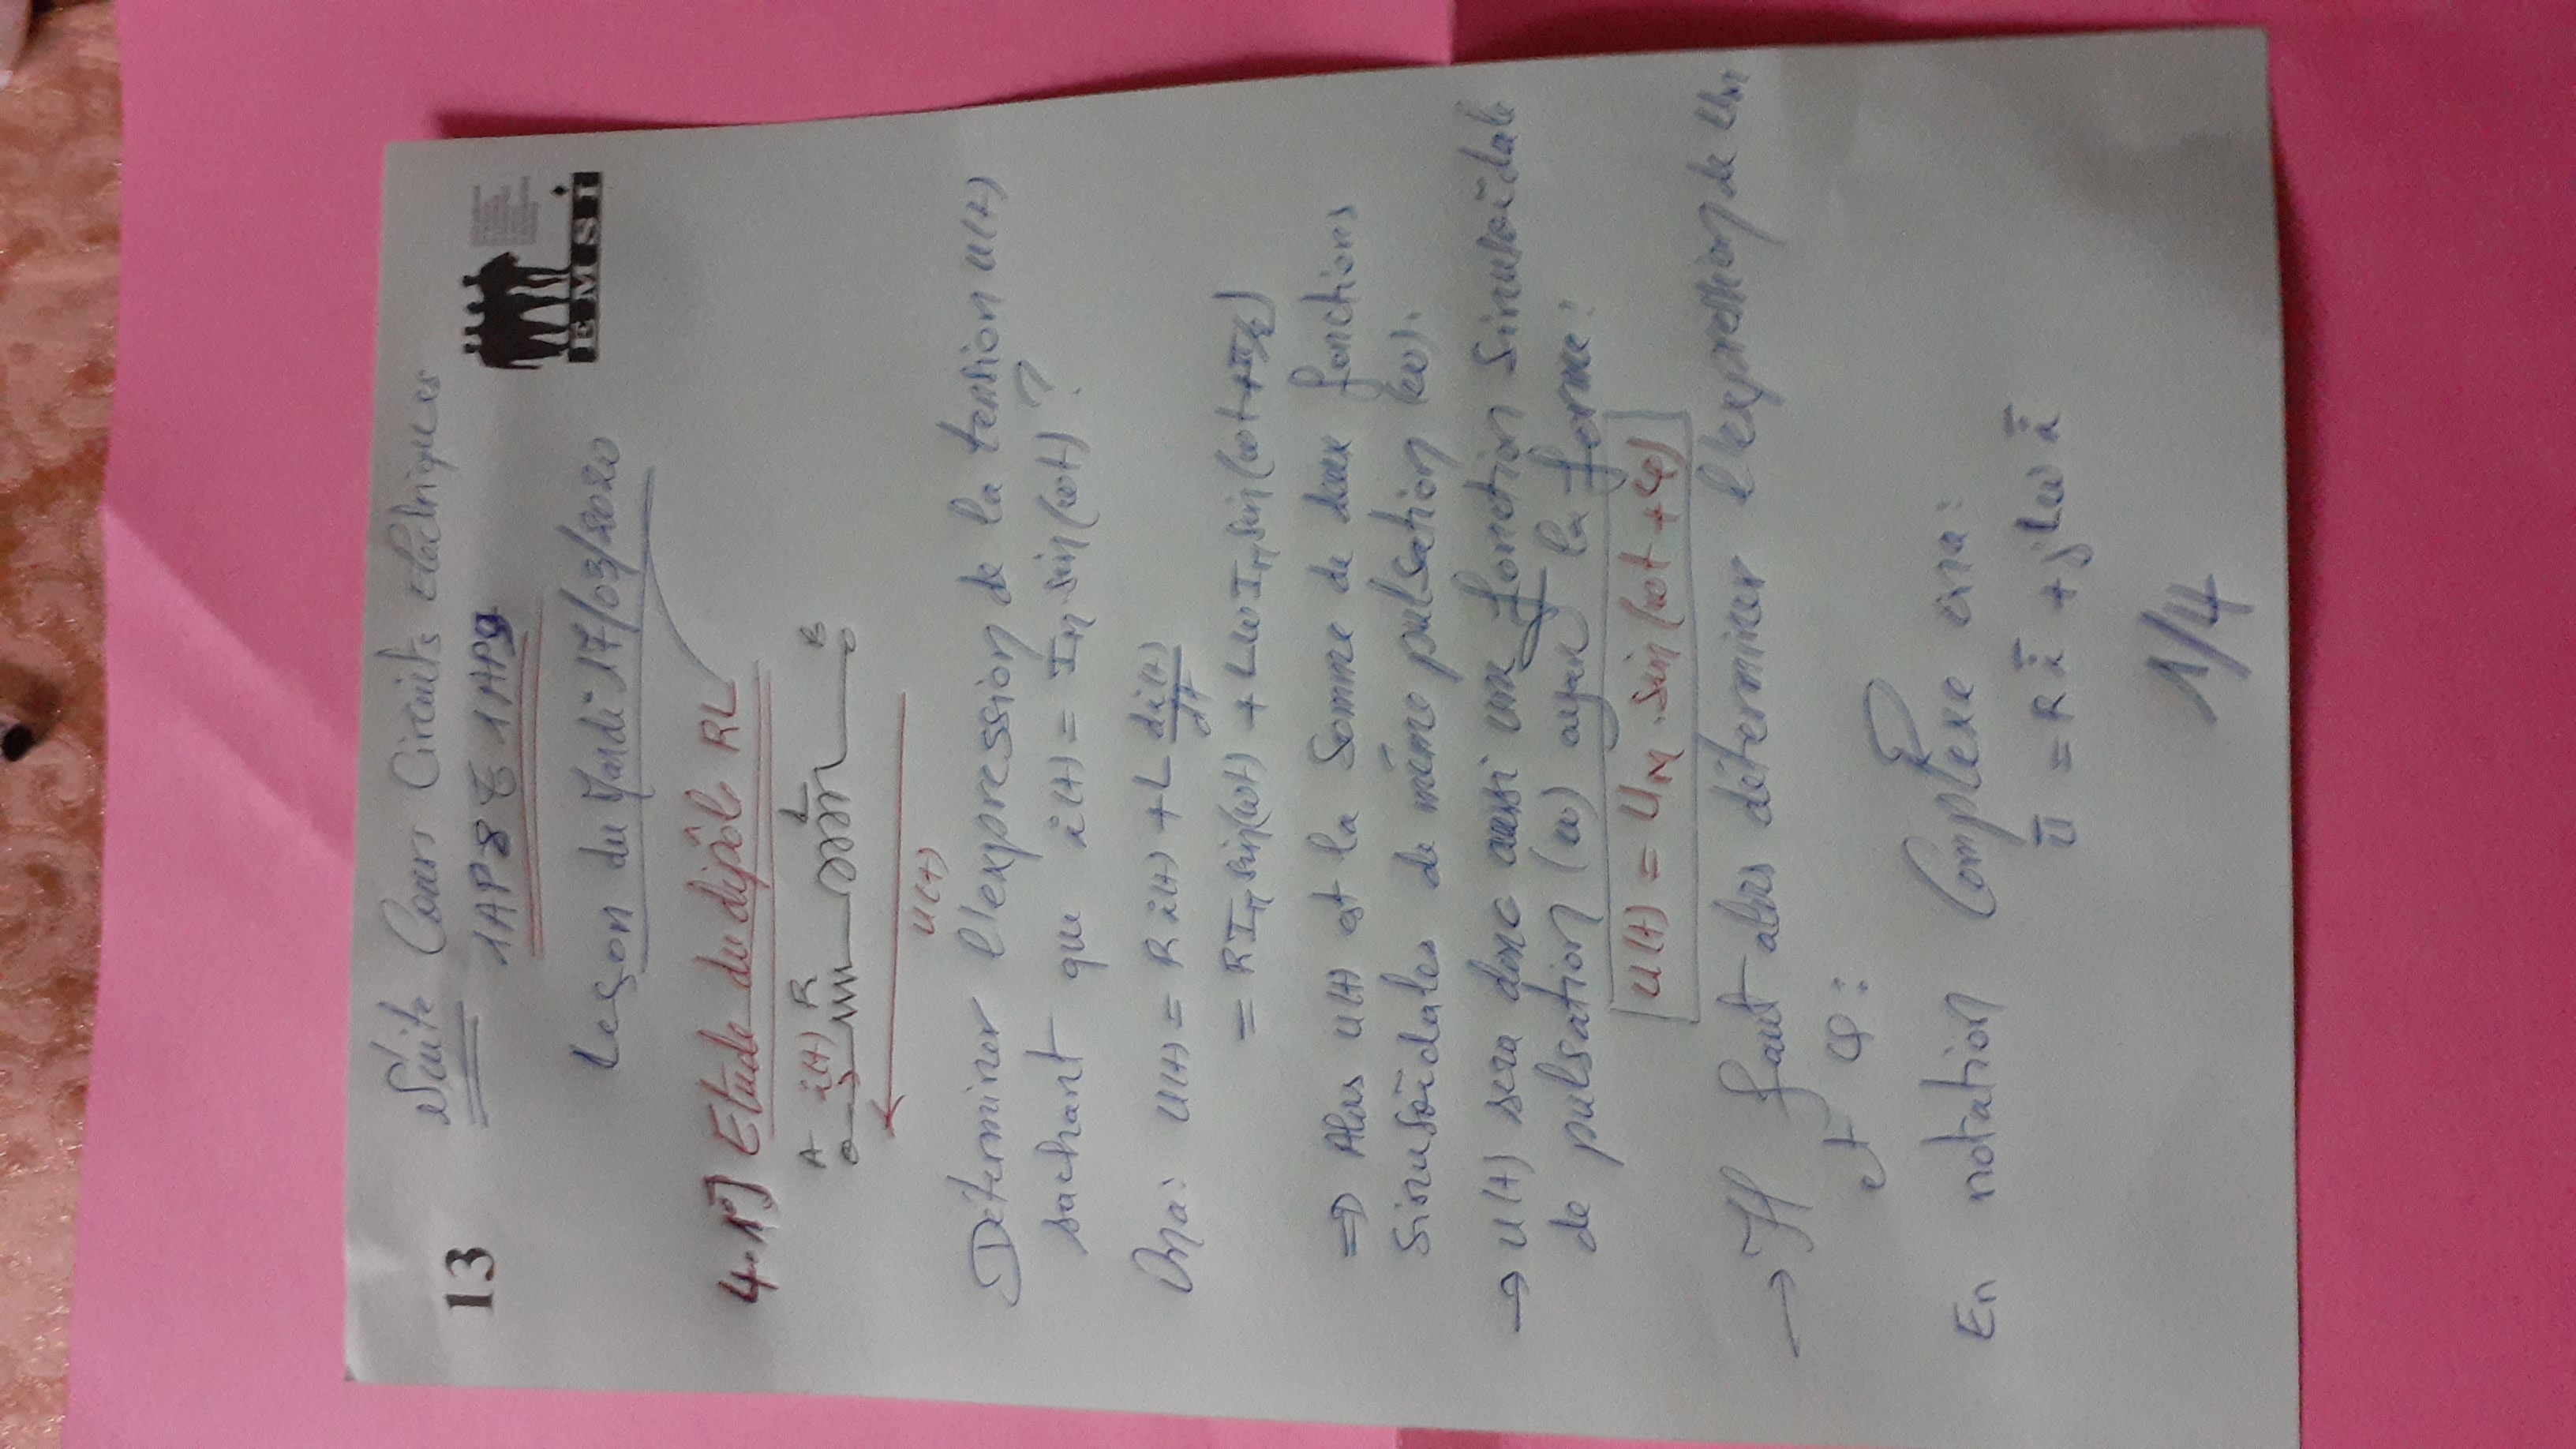 13
Suite Cours Circuits Electriques
1AP8 & 1AP9
EMSI
Leçon du Mardi 17/03/2020
4.1°] Etude du dipôle RL
A i(t) R L B
u(t)
Déterminer l'expression de la tension u(t)
sachant que i(t) = I_M.sin(ωt) ?
On a: u(t) = R i(t) + L di(t)/dt
= R I_M sin(ωt) + Lω I_M sin(ωt + π/2)
=> Alors u(t) est la somme de deux fonctions
sinusoïdales de même pulsation (ω).
→ u(t) sera donc aussi une fonction sinusoïdale
de pulsation (ω) ayant la forme:
u(t) = U_M . sin(ωt + φ)
→ Il faut alors déterminer l'expression de U_M
et φ :
En notation Complexe on a:
ū = R ī + jLω ī
1/4